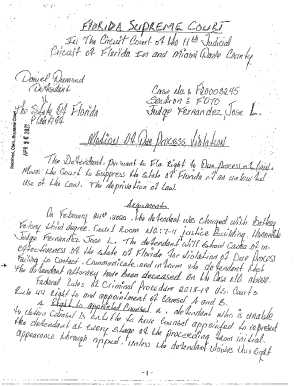 FLORIDA SUPREME COURT
In The Circuit Court of the 11th Judicial
Circuit of Florida In and Miami Dade County
Daniel Dumond
Defendant
v
The State Of Florida
Plaintiff
Case No: F20003245
Section: F070
Judge Fernandez Jose L.
Motion Of Due Process Violation
The Defendant, pursuant to Fla. Right to Due Process of Law,
Moves the Court to suppress the State of Florida of an unlawful
use of the Law. The deprivation of Law.
Argument
On February 2020, the defendant was charged with Battery
Felony third degree. Court Room NO: 7-4 Justice Building. Honorable
Judge Fernandez Jose L. The defendant will
effectiveness of the State of Florida for violation of Due Process
Failing to Contact, Communicate, and inform the defendant that
the defendant attorney have been deceased on the Case No. above.
Federal Rules of Criminal Procedure 2018-19 U.S. Courts
Rule 44 Right to and appointment of Counsel A and B.
A Right to appointed Counsel. A defendant who is unable
to obtain Counsel is entitle to have Counsel appointed to represent
the defendant at every stage of the proceeding from initial
appearance through appeal, unless the defendant waives this right
-1-